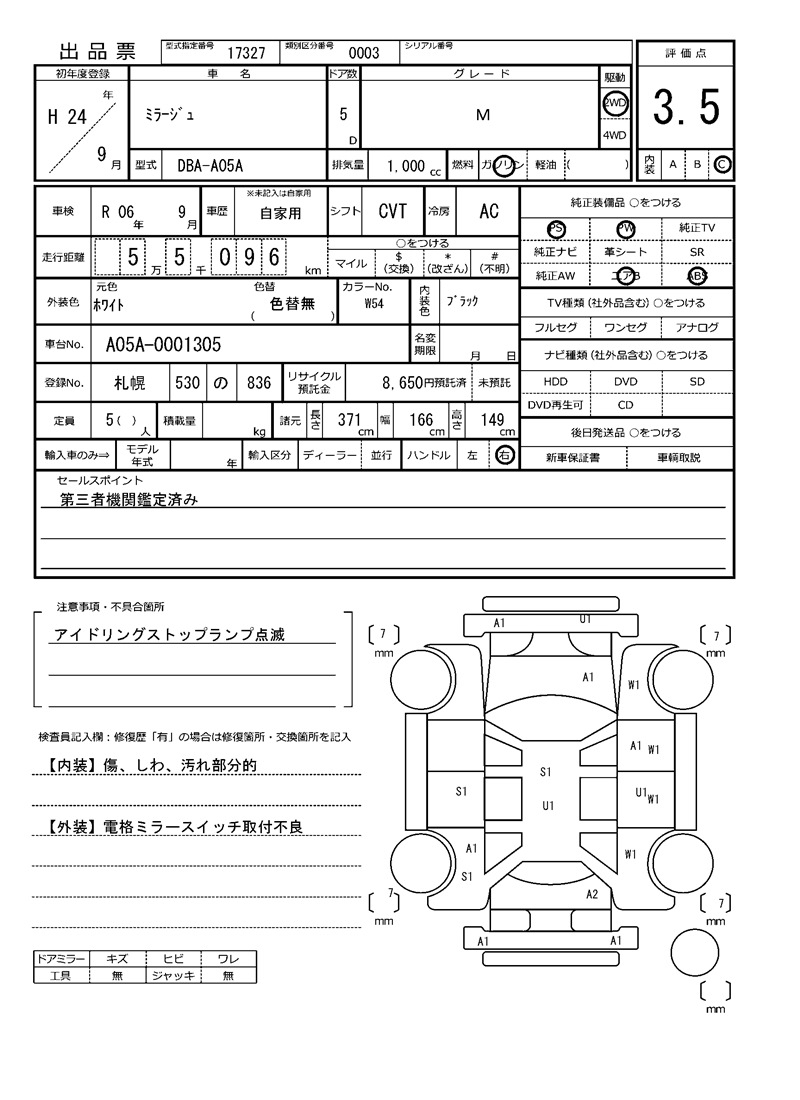 出品票 型式指定番号 17327 類別区分番号 0003 シリアル番号
評価点
初年度登録 車名 ドア数 グレード 駆動
H 24 年 9 月 ﾐﾗｰｼﾞｭ 5 D M 2WD 4WD
3.5
型式 DBA-A05A 排気量 1,000 cc 燃料 ガソリン 軽油 ( )
内装 A B C
車検 R 06 年 9 月 車歴 ※未記入は自家用 自家用 シフト CVT 冷房 AC
純正装備品 ○をつける
PS PW 純正TV
純正ナビ 革シート SR
純正AW エアB ABS
走行距離 5 万 5 千 0 9 6 km
○をつける
マイル $ (交換) * (改ざん) # (不明)
外装色 元色 ﾎﾜｲﾄ 色替 ( 色替無 ) カラーNo. W54 内装色 ﾌﾞﾗｯｸ
TV種類(社外品含む)○をつける
フルセグ ワンセグ アナログ
車台No. A05A-0001305 名変期限 月 日
ナビ種類(社外品含む)○をつける
HDD DVD SD
DVD再生可 CD
登録No. 札幌 530 の 836 リサイクル預託金 8,650円預託済 未預託
定員 5( ) 人 積載量 kg 諸元 長さ 371 cm 幅 166 cm 高さ 149 cm
後日発送品 ○をつける
新車保証書 車輌取説
輸入車のみ⇒ モデル年式 年 輸入区分 ディーラー 並行 ハンドル 左 右
セールスポイント
第三者機関鑑定済み
注意事項・不具合箇所
アイドリングストップランプ点滅
検査員記入欄：修復歴「有」の場合は修復箇所・交換箇所を記入
【内装】傷、しわ、汚れ部分的
【外装】電格ミラースイッチ取付不良
ドアミラー キズ ヒビ ワレ
工具 無 ジャッキ 無
A1 U1
7 mm
7 mm
A1
W1
A1 W1
S1
S1
U1
U1 W1
A1
W1
S1
A2
7 mm
7 mm
A1 A1
mm